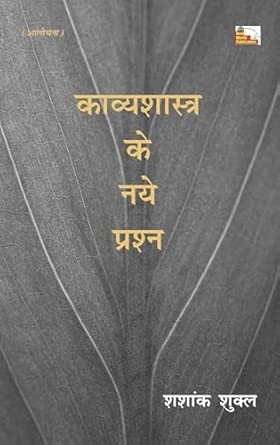 (आलोचना)
काव्यशास्त्र
के
नये
प्रश्न
शशांक शुक्ल